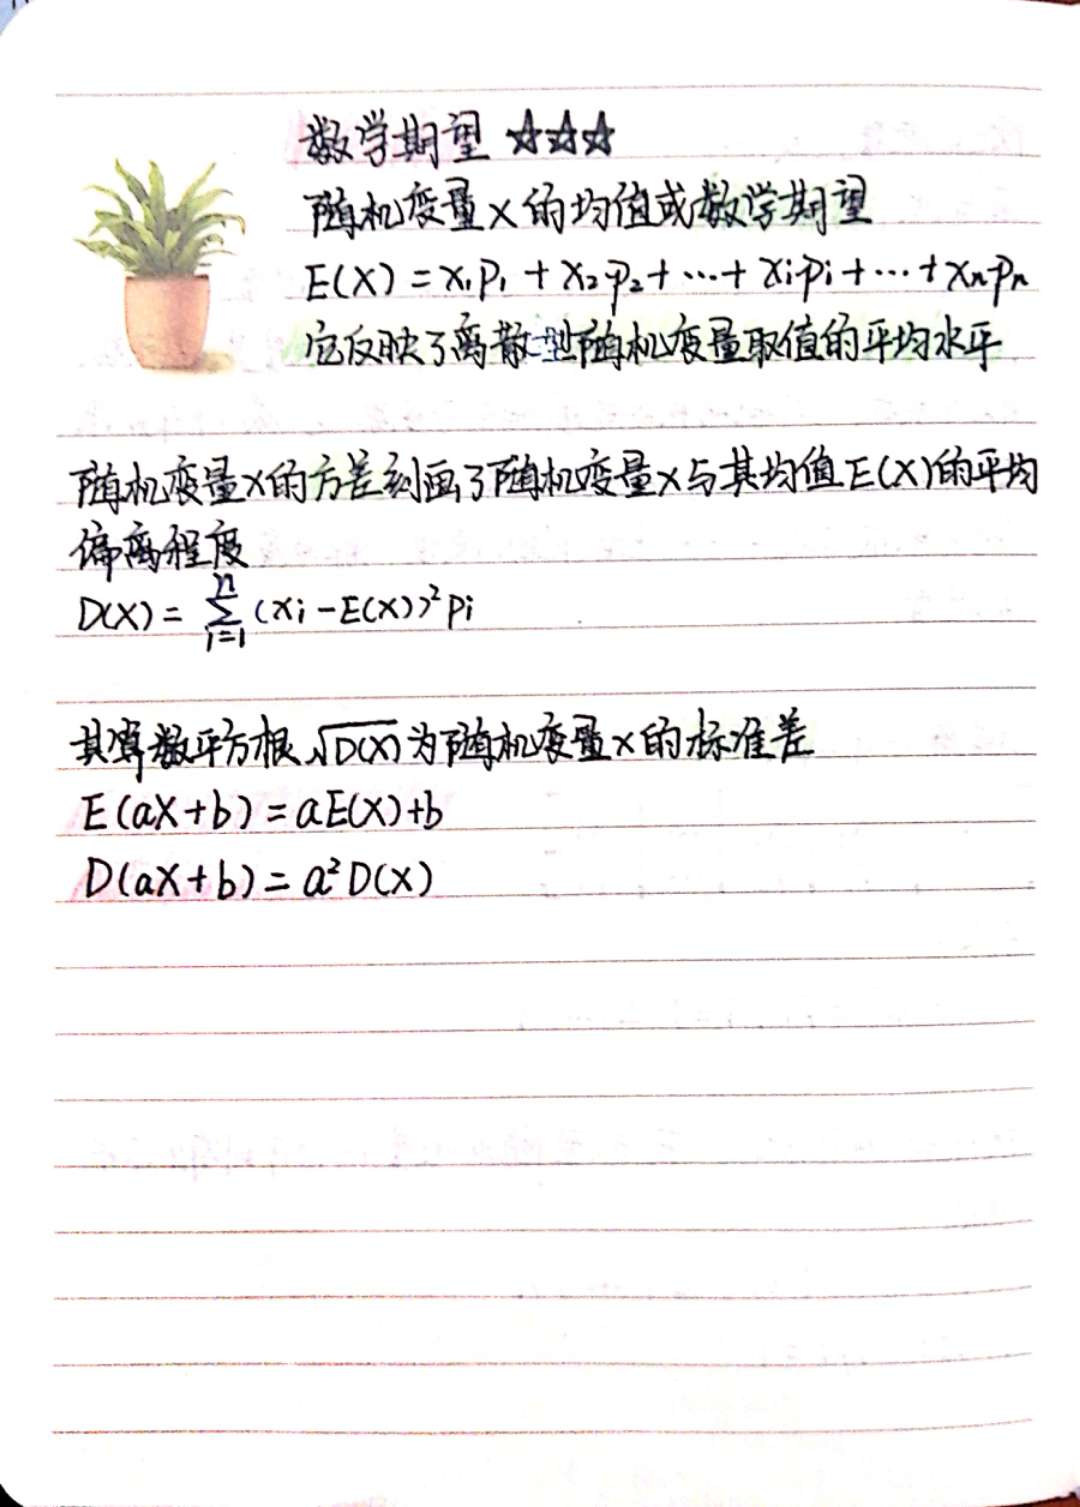 数学期望 ☆☆☆
随机变量X的均值或数学期望
E(X) = x₁p₁ + x₂p₂ + ⋯ + xᵢpᵢ + ⋯ + xₙpₙ
它反映了离散型随机变量取值的平均水平
随机变量X的方差刻画了随机变量X与其均值E(X)的平均
偏离程度
D(X) = ∑ᵢ₌₁ⁿ (xᵢ - E(X))² pᵢ
其算数平方根√D(X)为随机变量X的标准差
E(aX+b) = aE(X)+b
D(aX+b) = a²D(X)